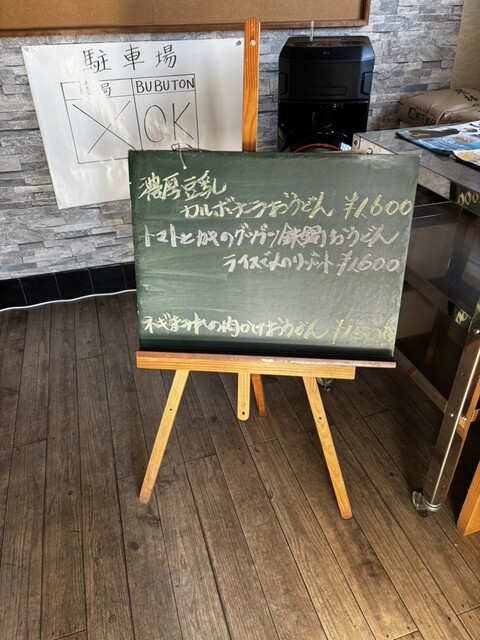 駐車場
局 BUBUTON
× OK
濃厚豆乳
カルボナーラおうどん ¥1,600
トマトとかきのグツグツ鉄鍋おうどん
ライス〆のリゾット ¥1,600
ネギまみれの肉かけおうどん